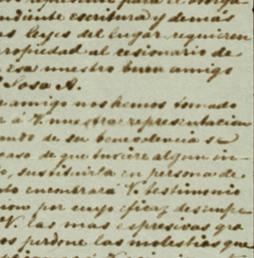 ndiente escritura y demas
as leyes del lugar requieren
ropiedad al cesionario de
esa nuestro buen amigo
Sosa A.
amigo nos hemos tomado
á V. nuestra representacion
ando de su benevolencia se
caso de que tuviere algun in-
o, sustituirla en persona de
to encontrará V. testimonio
ismo por cuyo eficaz desempe
V. las mas espresivas gra
os perdone las molestias que